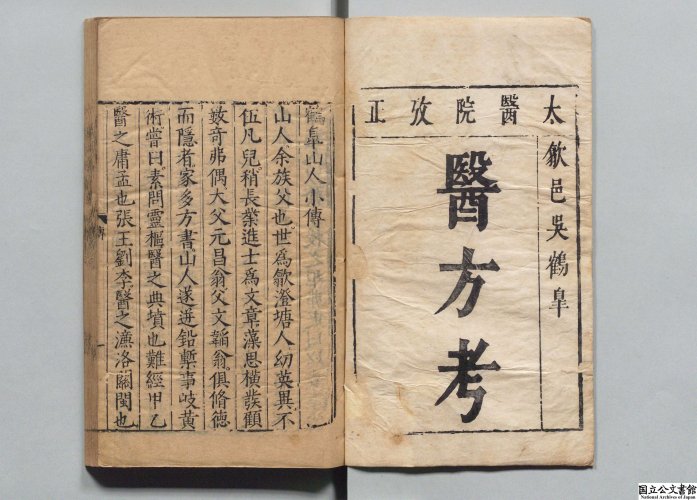 太醫院攷正
歙邑吳鶴皐
醫方考
鶴皐山人小傳
山人余族父也世爲歙澄塘人幼英異不
伍凡兒稍長業進士爲文章藻思橫發顧
數奇弗偶大父元昌翁父文韜翁俱脩德
而隱者家多方書山人遂逰鉛槧事岐黄
術嘗曰素問靈樞醫之典墳也難經甲乙
醫之庸孟也張王劉李醫之濂洛關閩也
傳
一
国立公文書館
National Archives of Japan